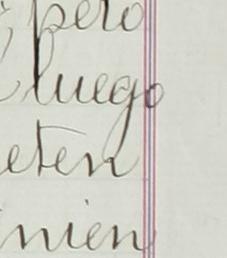 pero
luego
eten
nien